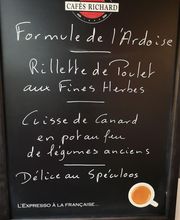 CAFÉS RICHARD
Formule de l'Ardoise
Rillette de Poulet
aux Fines Herbes
Cuisse de Canard
en pot au feu
de légumes anciens
Délice au Spéculoos
L'EXPRESSO À LA FRANÇAISE...